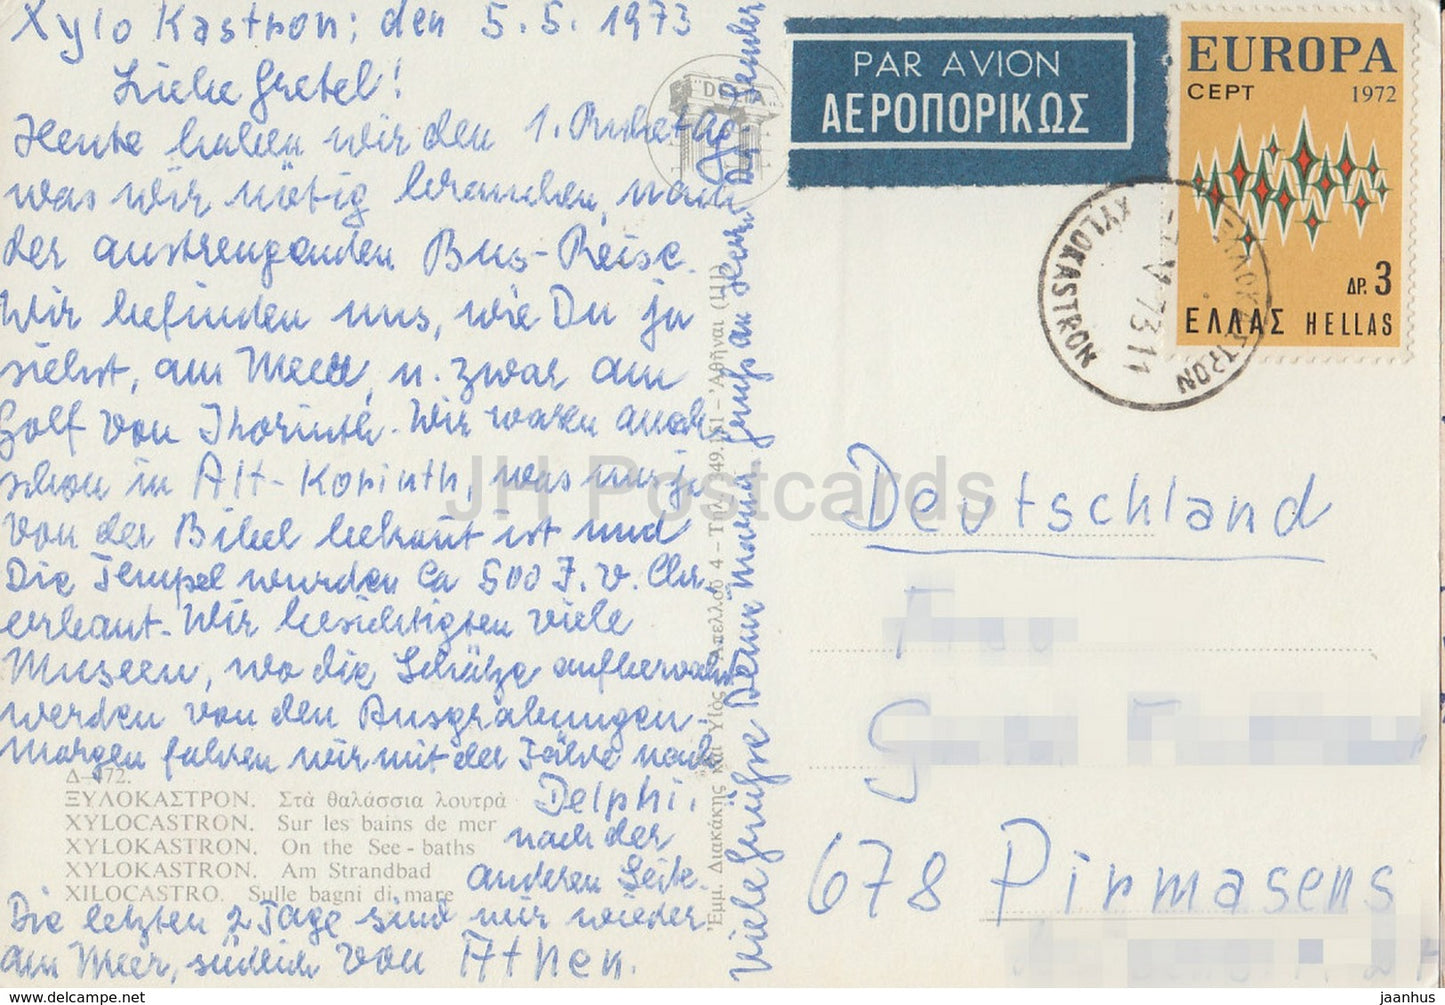 Xylo Kastron; den 5.5.1973
Liebe Gretel!
Heute haben wir den 1. Ruhetag
was wir nötig brauchen, nach
der anstrengenden Bus-Reise.
Wir befinden uns, wie Du ja
siehst, am Meer, u. zwar am
Golf von Khorinth. Wir waren auch
schon in Alt-Korinth, was uns ja
von der Bibel bekannt ist und
Die Tempel wurden Ca 500 J. v. Chr
erbaut. Wir besichtigten viele
Museen, wo die Schätze aufbewahrt
werden von den Ausgrabungen.
Morgen fahren wir mit der Fähre nach
Delphi.
nach der
anderen Seite.
Die letzten 2 Tage sind wir wieder
am Meer, südlich von Athen.
Viele Grüße Deine
Gruß an
Δ-172.
ΞΥΛΟΚΑΣΤΡΟΝ. Στὰ θαλάσσια λουτρὰ
XYLOCASTRON. Sur les bains de mer
XYLOKASTRON. On the See-baths
XYLOKASTRON. Am Strandbad
XILOCASTRO. Sulle bagni di mare
Ἐμμ. Διακάκης καὶ Υἱὸς Ἀπελλοῦ 4 - Τηλ. 249.151 - Ἀθῆναι (111)
PAR AVION
ΑΕΡΟΠΟΡΙΚΩΣ
EUROPA
CEPT 1972
ΔΡ. 3
ΕΛΛΑΣ HELLAS
XYLOKASTRON
ΞΥΛΟΚΑΣΤΡΟΝ
-7.V 73 11
JH Postcards
Deutschland
Frau
678 Pirmasens
jaanhus-box.com
jaanhus